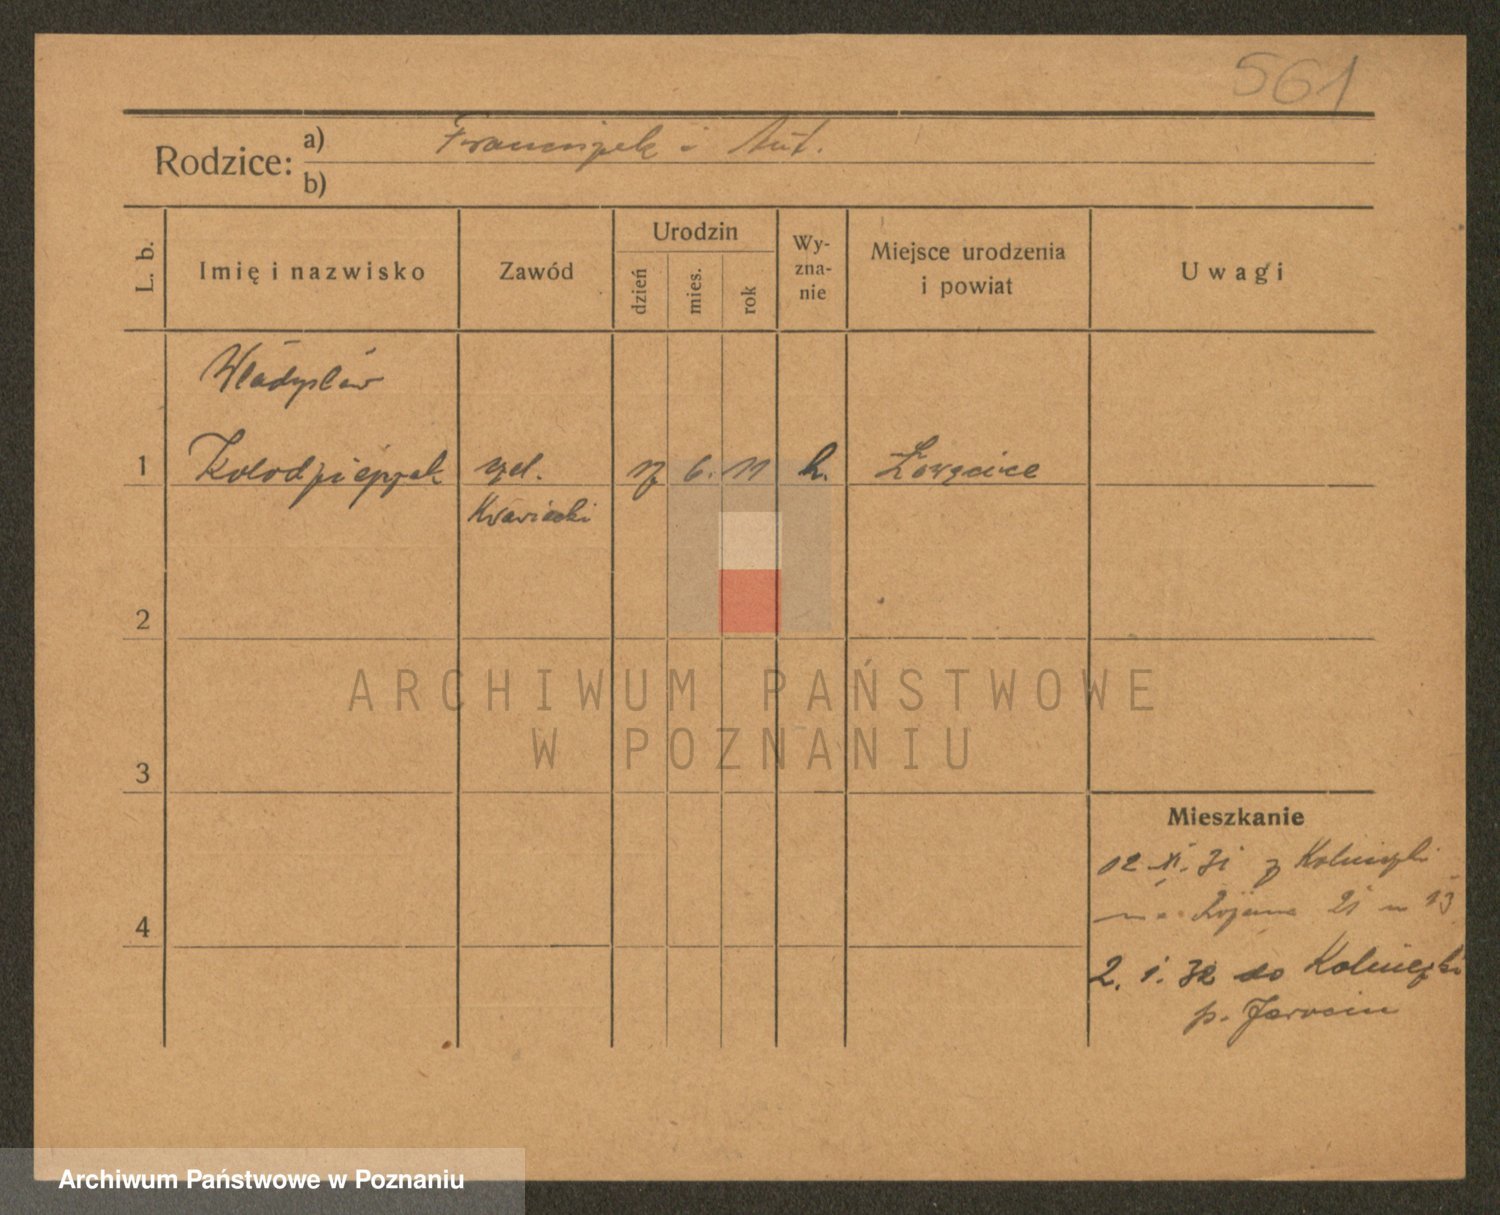 561
Rodzice: a) Franciszek i Ant.
b)
L. b. Imię i nazwisko Zawód Urodzin dzień mies. rok Wy-zna-nie Miejsce urodzenia i powiat Uwagi
Władysław
1 Kołodziejczak czel. 17 6. 11 k. Łowęcice
Krawiecki
2
ARCHIWUM PAŃSTWOWE
W POZNANIU
3
Mieszkanie
12 XI. 31 z
na 21 m 13
4
2. 1. 32 do
p. Jarocin
Archiwum Państwowe w Poznaniu